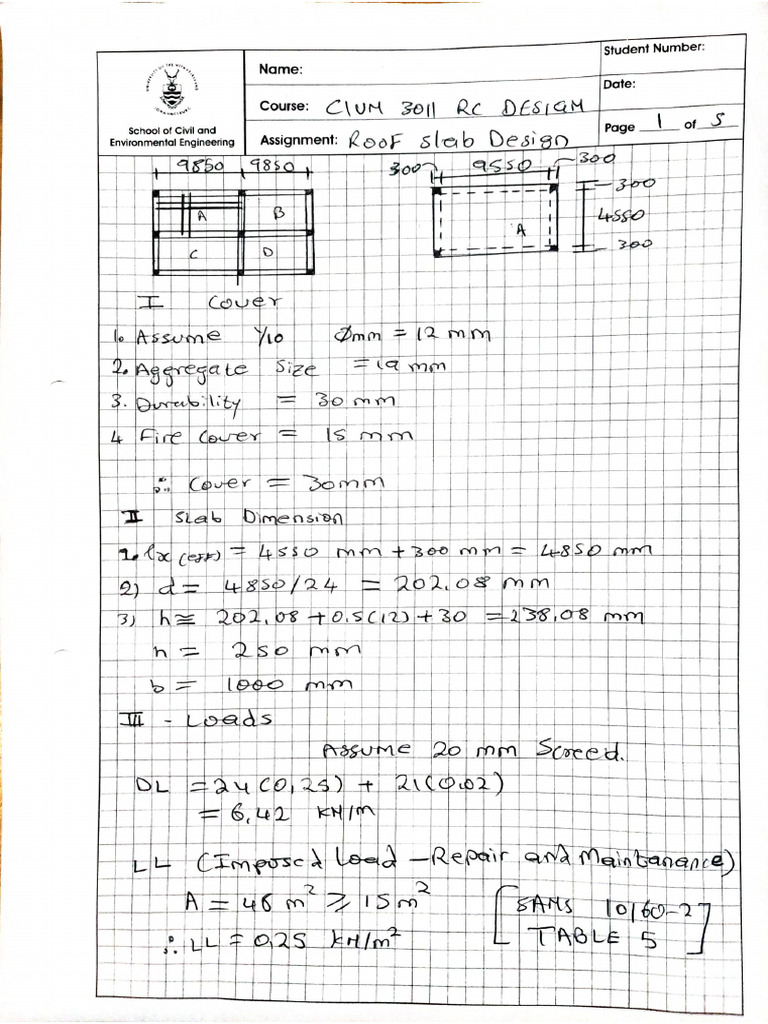 Student Number:
Name:
Date:
Course: CIVN 3011 RC DESIGN
School of Civil and
Environmental Engineering
Assignment: Roof Slab Design
Page 1 of 5
9850 9850
300 9550 300
A B
C D
A
300
4550
300
I Cover
1. Assume Y10 Ømm = 12 mm
2. Aggregate size = 19 mm
3. Durability = 30 mm
4 Fire cover = 15 mm
∴ Cover = 30mm
II Slab Dimension
1. lx (eff) = 4550 mm + 300 mm = 4850 mm
2) d = 4850/24 = 202.08 mm
3) h ≅ 202,08 + 0.5(12) + 30 = 238,08 mm
h = 250 mm
b = 1000 mm
III - Loads
Assume 20 mm Screed.
DL = 24(0,25) + 21(0.02)
= 6,42 KN/m
LL (Imposed Load - Repair and Maintanance)
A = 46 m² ⩾ 15m²
[SANS 10160-2]
∴ LL = 0,25 KN/m²
[TABLE 5]